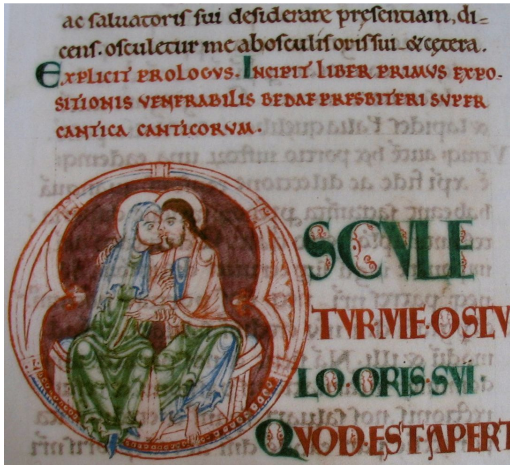 ac saluatoris sui desiderare presentiam, di-
cens. osculetur me ab osculis oris sui. & cętera.
EXPLICIT PROLOGVS. INCIPIT LIBER PRIMVS EXPO-
SITIONIS VENERABILIS BEDAE PRESBITERI SVPER
CANTICA CANTICORVM.
OSCVLE
TVR·ME·OSCV
LO·ORIS·SVI
QVOD·EST·APERT